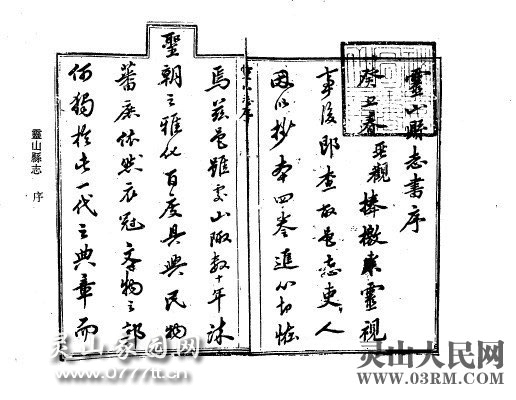 靈山縣志書序
癸丑春觀捧檄來靈視
事後即查故邑志吏人
因以抄本四卷進心切怪
焉茲邑雖處山陬數十年沐
聖朝之雅化百度具興民物
蕃庶依然衣冠文物之郡
何獨於此一代之典章而
靈山縣志 序
灵山家园网
www.0777tt.cn
灵山人民网
www.03RM.com